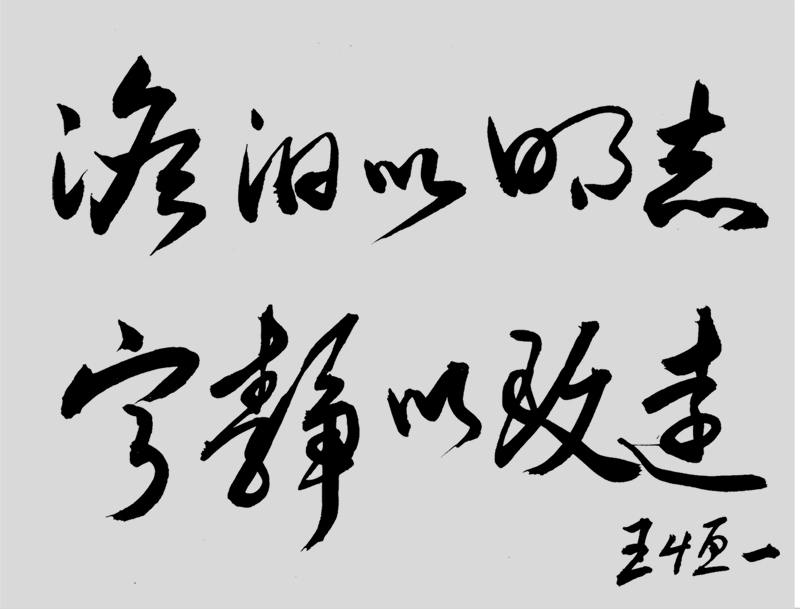 澹泊以明志
宁静以致远
王恒一